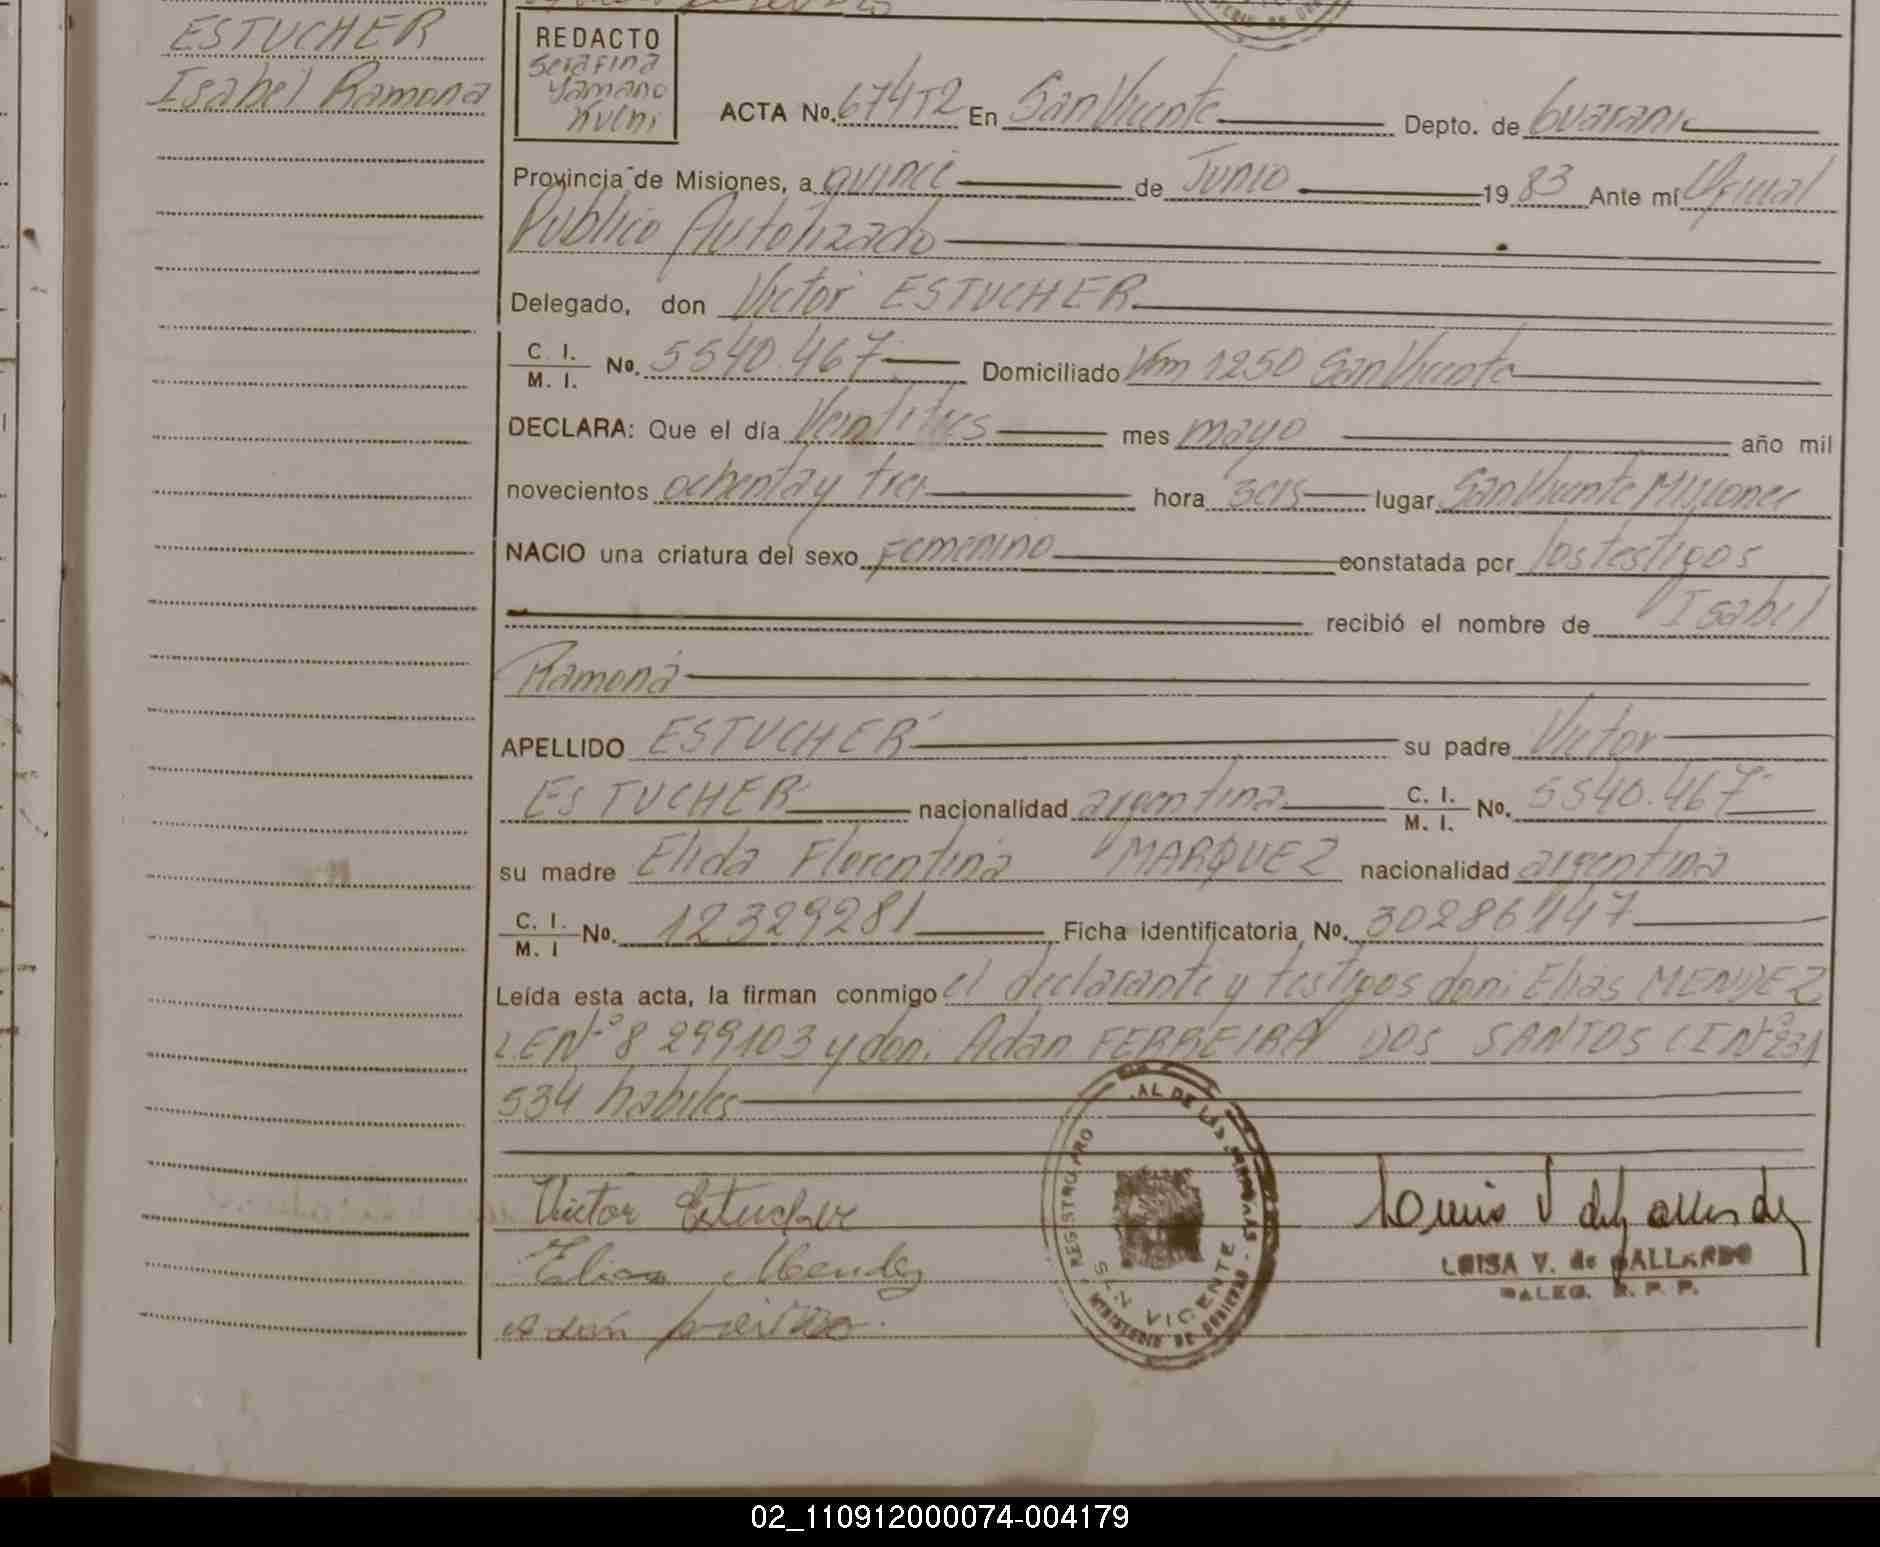 ESTUCHER
Isabel Ramona
REDACTO
Serafina
Yamano
Kuchi
ACTA No. 674T2 En San Vicente Depto. de Guarani
Provincia de Misiones, a quince de Junio 19 83 Ante mí Oficial
Publico Autorizado
Delegado, don Victor ESTUCHER
C. I. / M. I. No. 5540.467 Domiciliado Km 1250 San Vicente
DECLARA: Que el día Veintitres mes mayo año mil
novecientos ochenta y tres hora seis lugar San Vicente Misiones
NACIO una criatura del sexo Femenino constatada por los testigos
recibió el nombre de Isabel
Ramona
APELLIDO ESTUCHER su padre Victor
ESTUCHER nacionalidad argentina C. I. / M. I. No. 5540.467
su madre Elida Florentina MARQUEZ nacionalidad argentina
C. I. / M. I No. 12329281 Ficha identificatoria No. 30286147
Leída esta acta, la firman conmigo el declarante y testigos don: Elias MENDEZ
LE Nº 8 299103 y don: Adan FERREIRA DOS SANTOS CI Nº 231
534 habiles
Victor Estucher
Elias Mendez
Adán
REGISTRO PRO AL DE LAS PERSONAS - MINISTERIO DE GOBIERNO
SAN VICENTE
LUISA V. de GALLARDO
DALEG. R. P. P.
02_110912000074-004179